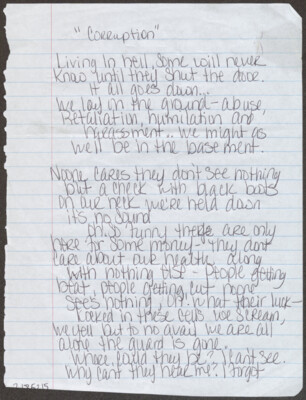 "Corruption"
Living in hell, some will never
know until they shut the door.
It all goes down...
We lay in the ground - abuse,
Retaliation, humiliation and
harassment.. we might as
well be in the basement.
Noone cares they don't see nothing
but a check with black boots
on our neck we're held down
its no sound
oh so funny there are only
here for some money - they dont
care about our health, along
with nothing else - people getting
beat, people getting cut none
see's nothing, oh what their luck -
Locked in these cells we scream,
we yell but to no avail we are all
alone the guard is gone.
Where could they be? I cant see.
Why cant they hear me? I forgot